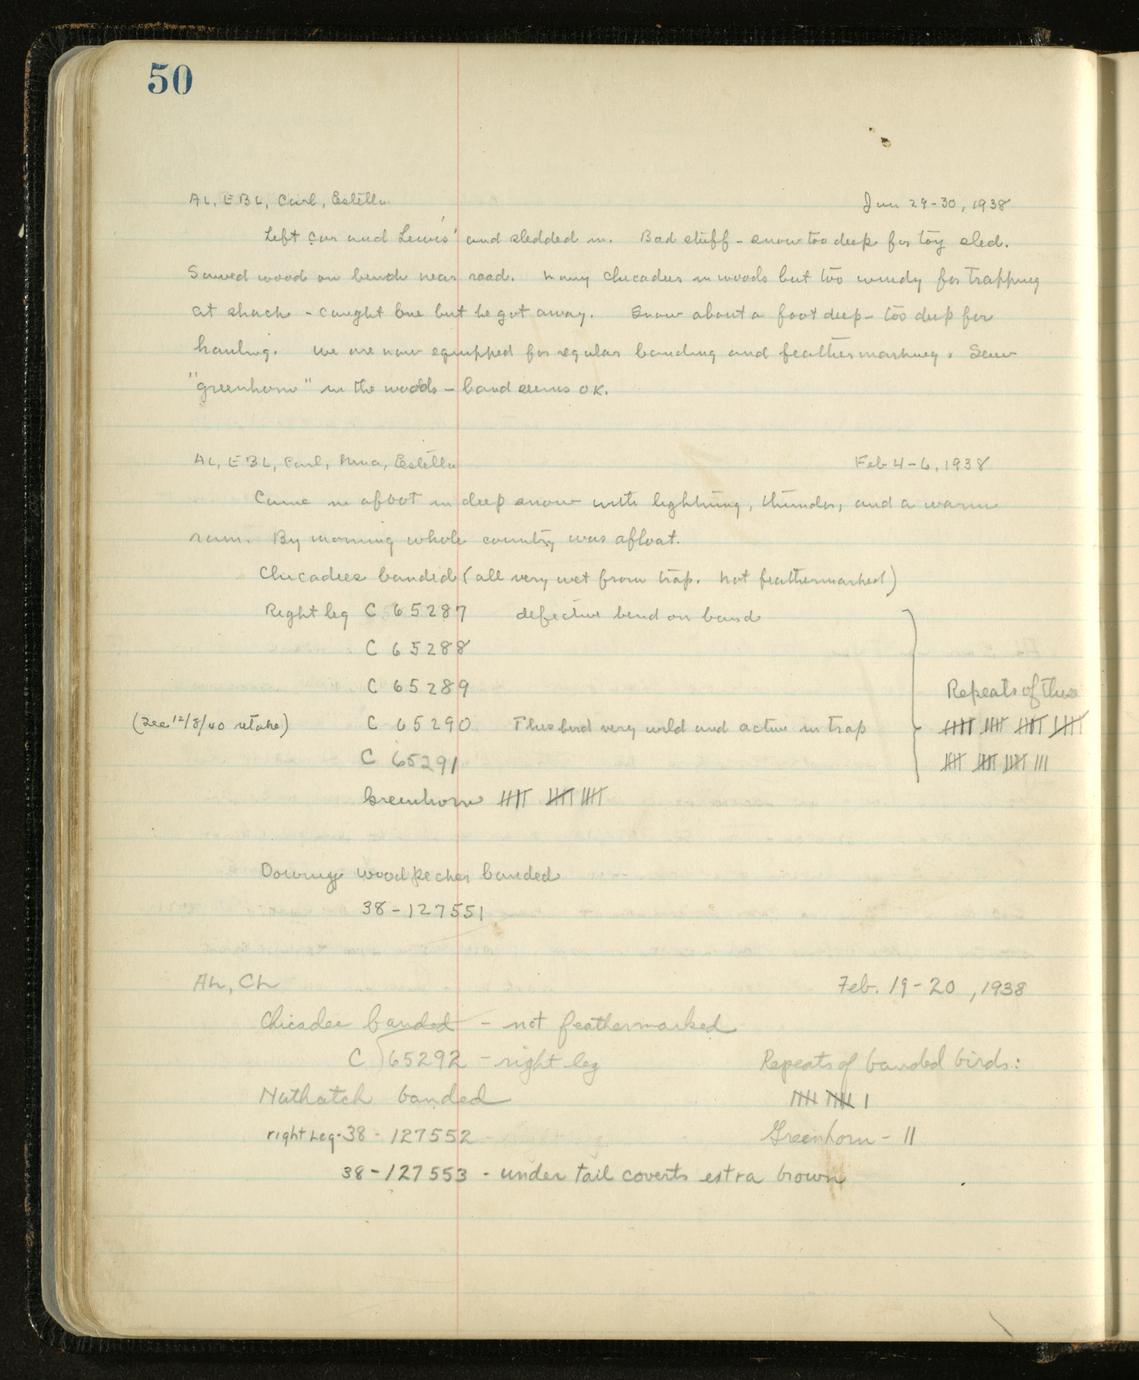 50
AL, EBL, Carl, Estella Jan 29-30, 1938
Left car and Lewis' and sledded in. Bad stuff - snow too deep for toy sled.
Sawed wood on bench near road. Many chicadees in woods but too windy for trapping
at shack - caught one but he got away. Snow about a foot deep - too deep for
hauling. We are now equipped for regular banding and feathermarking. Saw
"greenhorn" in the woods - band seems OK.
AL, EBL, Carl, Nina, Estella Feb 4-6, 1938
Came in afoot in deep snow with lightning, thunder, and a warm
rain. By morning whole country was afloat.
Chicadees banded (all very wet from trap. Not feathermarked)
Right leg C 65287 defective bend on band
C 65288
C 65289 Repeats of these
(See 12/8/40 retake) C 65290 This bird very wild and active in trap 卌 卌 卌 卌
C 65291 卌 卌 卌 |||
Greenhorn 卌 卌 卌
Downy woodpecker banded
38-127551
AL, CL Feb. 19-20, 1938
Chicadee banded - not feathermarked
C 65292 - right leg Repeats of banded birds:
Nuthatch banded 卌 卌 |
right leg - 38 - 127552 Greenhorn - ||
38-127553 - under tail coverts extra brown